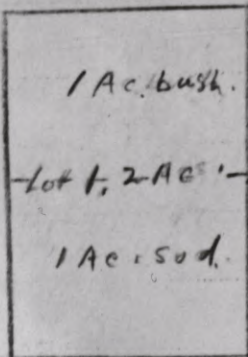 1 Ac. bush.
Lot 1, 2 Acs.
1 Ac. sod.